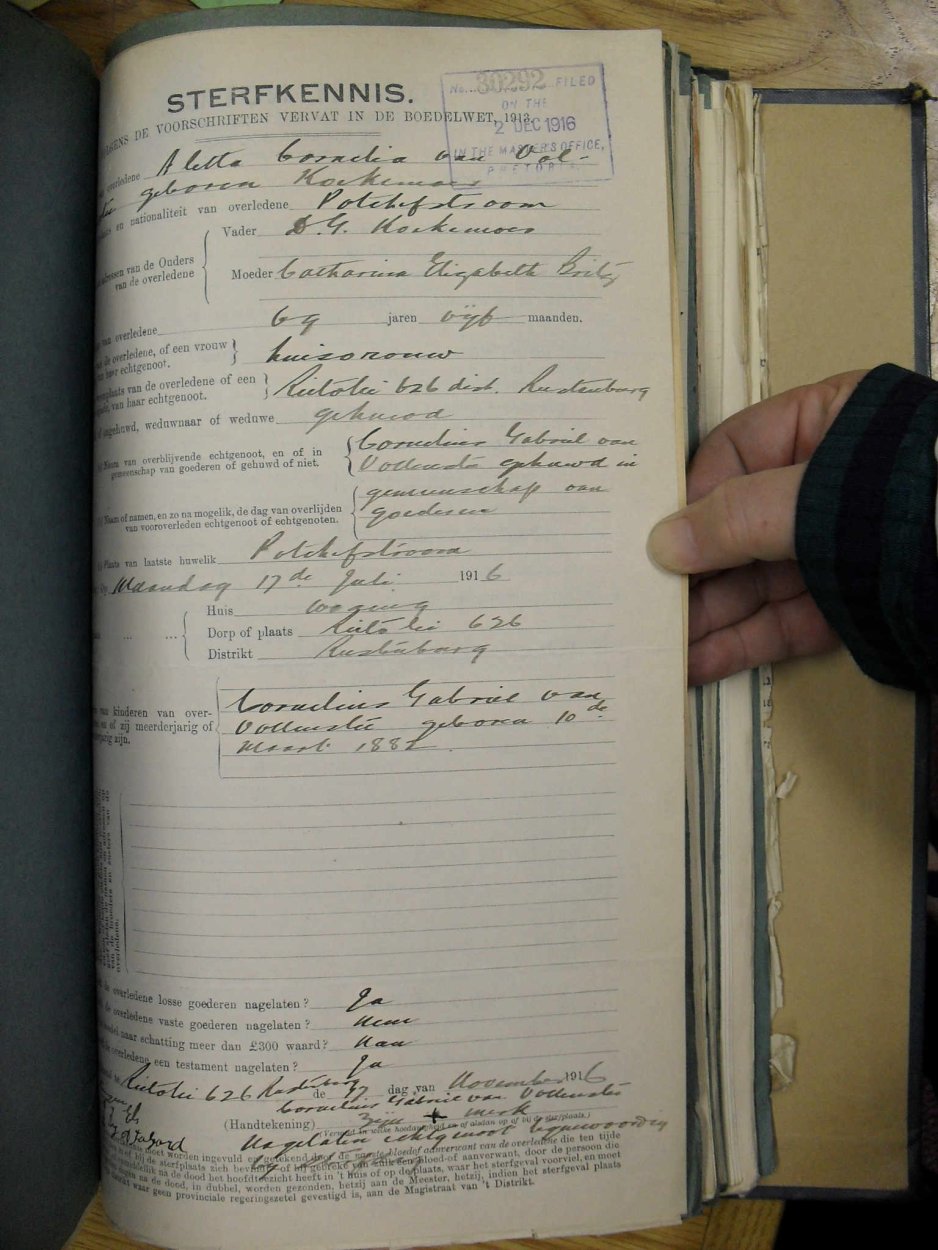 STERFKENNIS.
No. 30292 FILED
ON THE
2 DEC 1916
IN THE MASTER'S OFFICE,
PRETORIA.
DE VOORSCHRIFTEN VERVAT IN DE BOEDELWET, 1913.
overledene Aletta Cornelia van Vol-
geboren Koekemoer
en nationaliteit van overledene Potchefstroom
Vader D.G. Koekemoer
adressen van de Ouders
van de overledene
Moeder Catharina Elizabeth Brits
van overledene 69 jaren vijf maanden.
de overledene, of een vrouw
van haar echtgenoot. huisvrouw
van de overledene of een
van haar echtgenoot. Rietvlei 626 dist. Rustenburg
ongehuwd, weduwnaar of weduwe gehuwd
Naam van overblijvende echtgenoot, en of in
gemeenschap van goederen of gehuwd of niet.
Cornelius Gabriel van
Vollenstee gehuwd in
gemeenschap van
goederen
Naam of namen, en zo na mogelik, de dag van overlijden
van vooroverleden echtgenoot of echtgenoten.
Plaats van laatste huwelik Potchefstroom
Op Maandag 17de Juli 1916
Huis woning
Dorp of plaats Rietvlei 626
Distrikt Rustenburg
van kinderen van over-
en of zij meerderjarig of
zijn.
Cornelius Gabriel van
Vollenstee geboren 10de
Maart 1882
de overledene losse goederen nagelaten? Ja
de overledene vaste goederen nagelaten? Neen
naar schatting meer dan £300 waard? Nan
overledene een testament nagelaten? Ja
Rietvlei 626 de 17 dag van November 1916
Cornelius Gabriel van Vollenstee
(Handtekening) Zijn + merk
(Vermeld in welke hoedanigheid en of alstan op of bij de sterfplaats.)
Nagelaten echtgenoot tegenwoordig
moet worden ingevuld en getekend door de naaste bloed of aanverwant van de overledene die ten tijde
of bij de sterfplaats zich bevindt of bij gebreke van zulk een bloed-of aanverwant, door de persoon die
na de dood het hoofdtoezicht heeft in 't huis of op de plaats, waar het sterfgeval voorviel, en moet
na de dood, in dubbel, worden gezonden, hetzij aan de Meester, hetzij, indien het sterfgeval plaats
waar geen provinciale regeringszetel gevestigd is, aan de Magistraat van 't Distrikt.